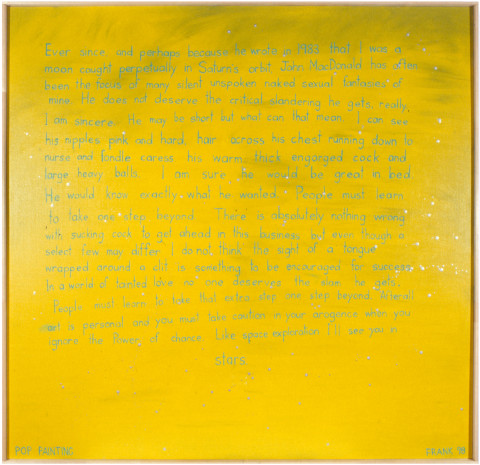 Ever since, and perhaps because he wrote in 1983 that I was a
moon caught perpetually in Saturn's orbit, John MacDonald has often
been the focus of many silent unspoken naked sexual fantasies of
mine. He does not deserve the critical slandering he gets, really,
I am sincere. He may be short but what can that mean. I can see
his nipples pink and hard, hair across his chest running down to
nurse and fondle caress his warm thick engorged cock and
large heavy balls. I am sure he would be great in bed.
He would know exactly what he wanted. People must learn
to take one step beyond. There is absolutely nothing wrong
with sucking cock to get ahead in this business and even though a
select few may differ I do not think the sight of a tongue
wrapped around a clit is something to be encouraged for success.
In a world of tainted love no one deserves the slain he gets.
People must learn to take that extra step one step beyond. Afterall
art is personal and you must take caution in your arogance when you
ignore the Power of chance. Like space exploration I'll see you in
stars.
POP PAINTING
FRANK